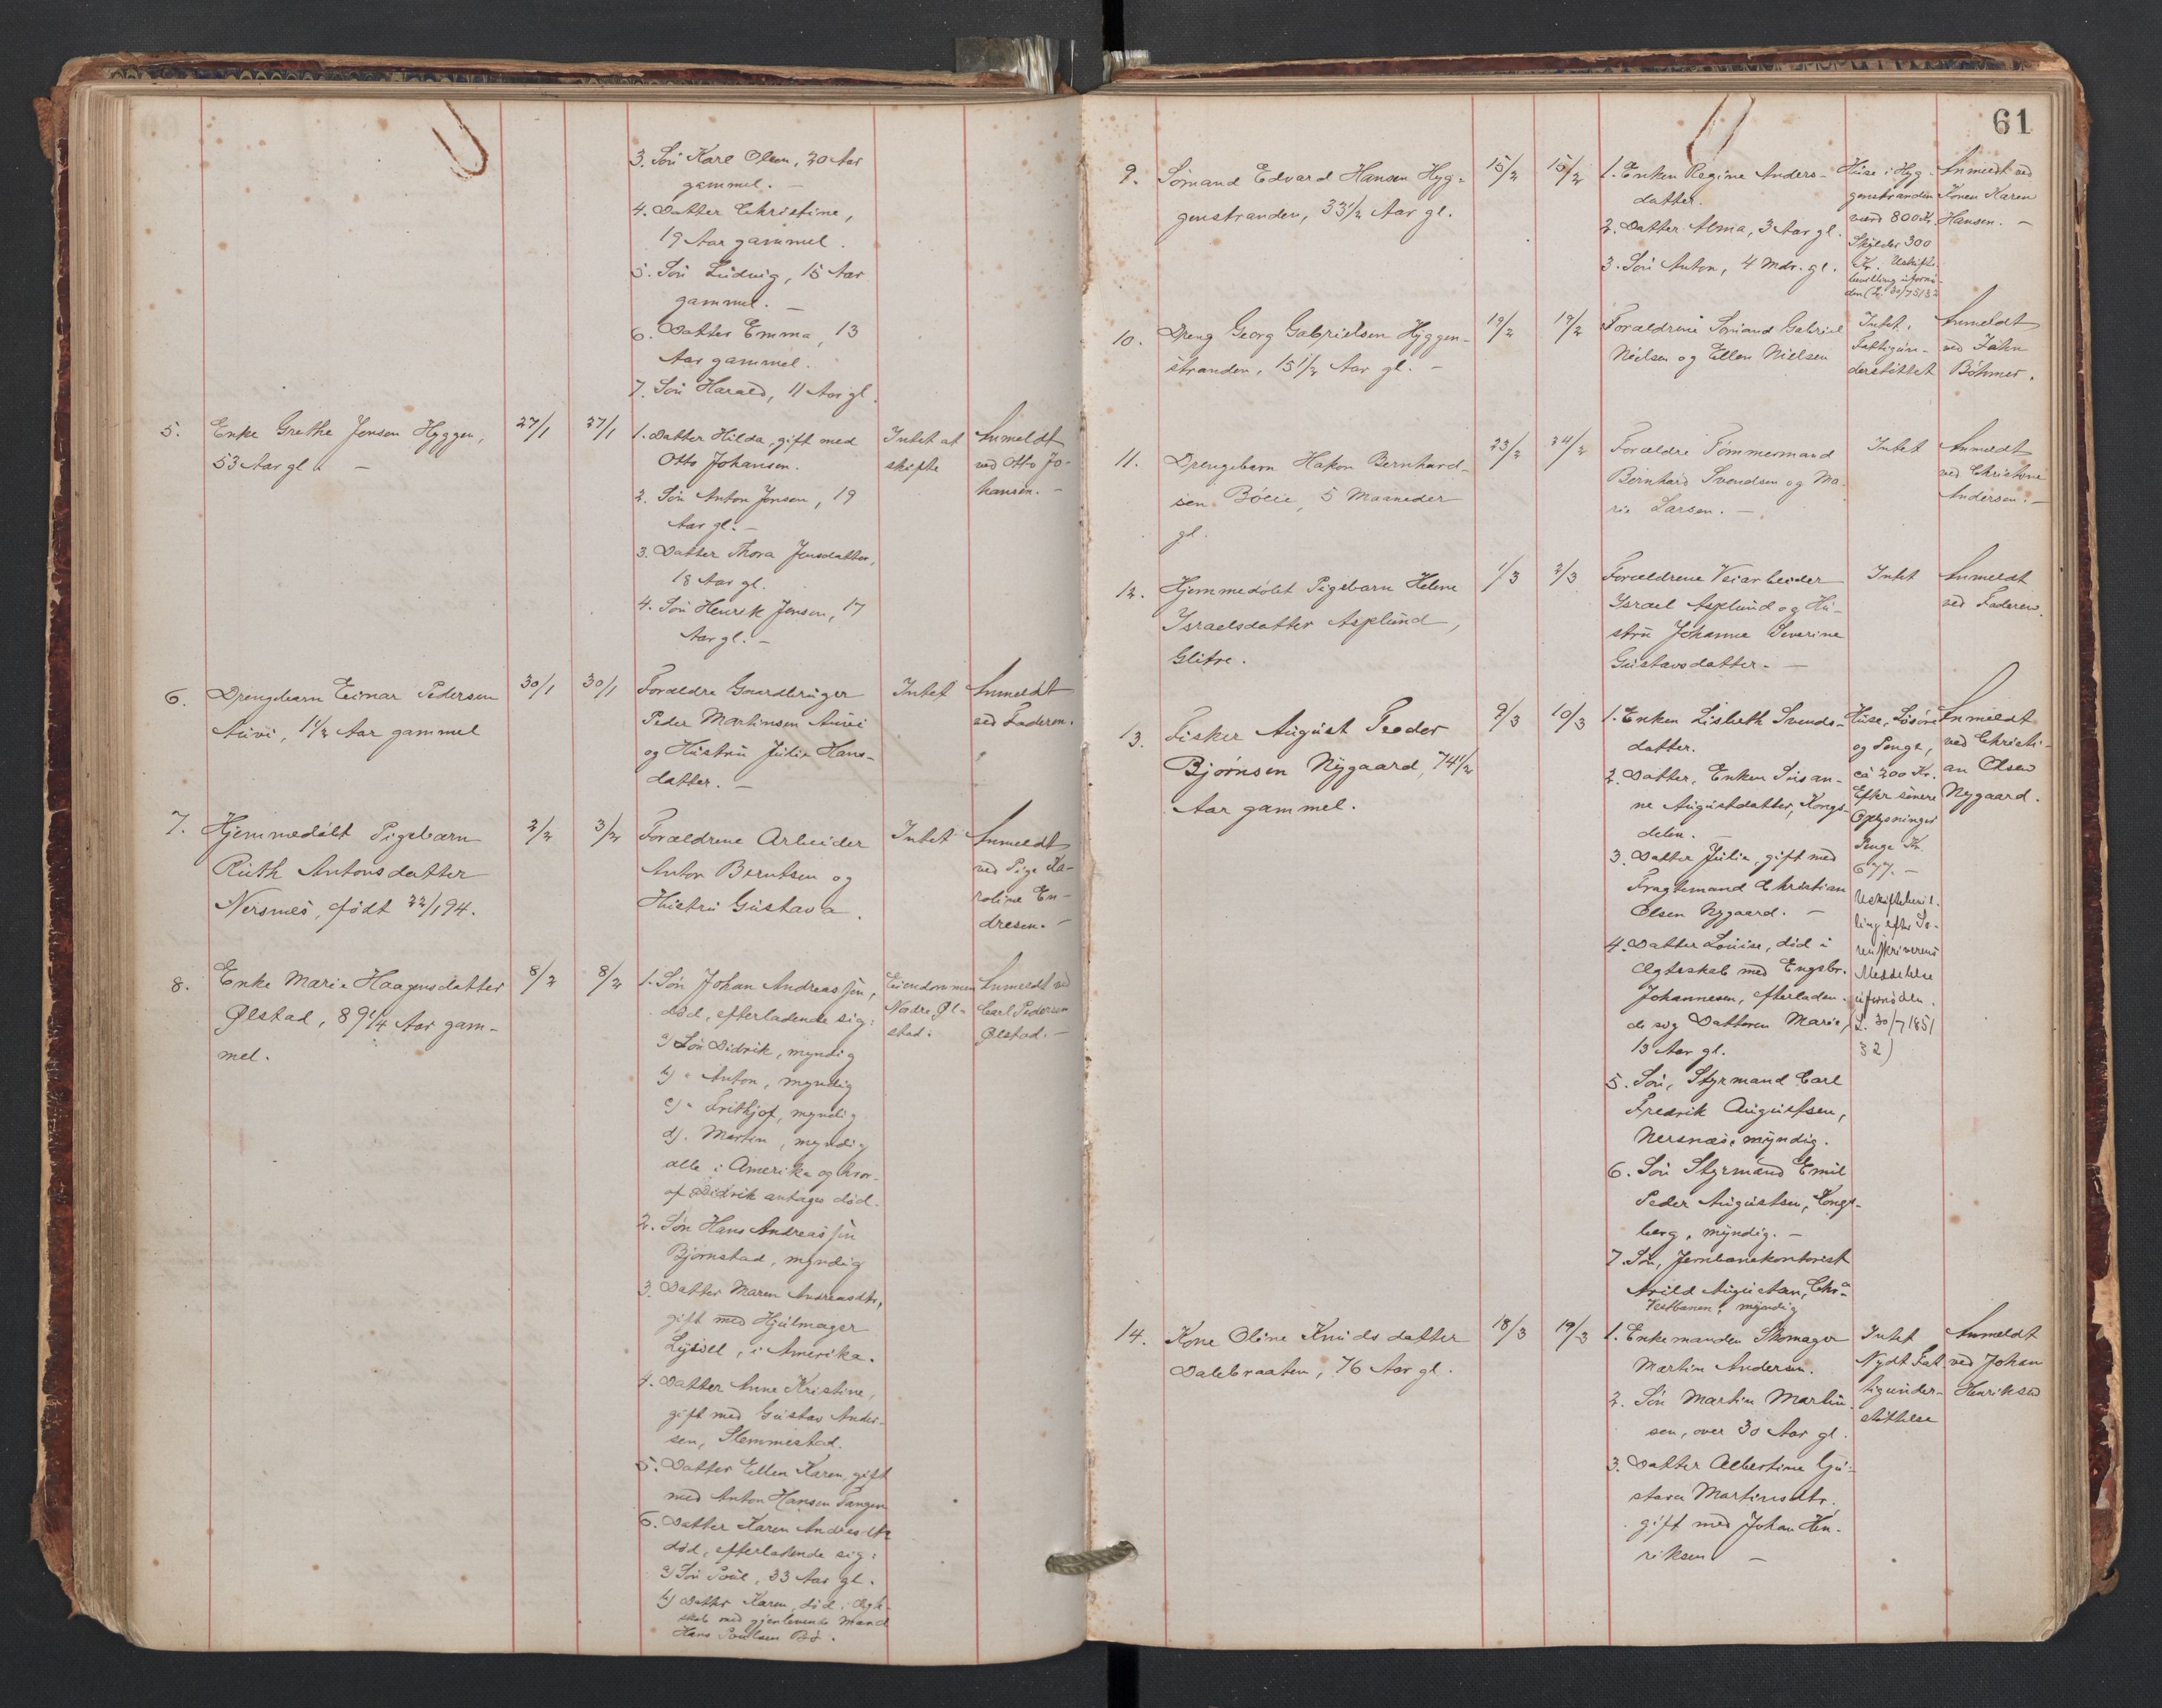 3. Søn Karl Olsen, 20 Aar
gammel. —
4. Datter Christine,
19 Aar gammel.
5. Søn Ludvig, 15 Aar
gammel. —
6. Datter Emma, 13
Aar gammel.
7. Søn Harald, 11 Aar gl.
5. Enke Grethe Jensen Hyggen,
53 Aar gl. —
27/1
27/1
1. Datter Hilda, gift med
Otto Johansen.
2. Søn Anton Jensen, 19
Aar gl. —
3. Datter Thora Jensdatter,
18 Aar gl.
4. Søn Henrik Jensen, 17
Aar gl. —
Intet at
skifte
Anmeldt
ved Otto Jo-
hansen. —
6. Drengebarn Einar Pedersen
Auvi, 1 1/2 Aar gammel
30/1
30/1
Forældre Gaardbruger
Peder Martinsen Auvi
og Hustru Julie Hans-
datter. —
Intet
Anmeldt
ved Faderen.
7. Hjemmedøbt Pigebarn
Ruth Antonsdatter
Nersnes, født 22/1 94.
2/2
3/2
Forældrene Arbeider
Anton Berntsen og
Hustru Gustava.
Intet
Anmeldt
ved Pige Ka-
roline En-
dresen. —
8. Enke Marie Haagensdatter
Ølstad, 89 1/4 Aar gam-
mel.
8/2
8/2
1. Søn Johan Andreassen,
død, efterladende sig:
a) Søn Didrik, myndig
b) " Anton, myndig
c) " Frithjof, myndig
d) " Martin, myndig
alle i Amerika og hvor-
af Didrik antages død.
2. Søn Hans Andreassen
Bjørnstad, myndig
3. Datter Maren Andreasdtr,
gift med Hjulmager
i Amerika.
4. Datter Anne Kristine,
gift med Gustav Ander-
sen, Slemmestad.
5. Datter Ellen Karen, gift
med Anton Hansen Tangen
6. Datter Karen Andreasdtr
død, efterladende sig:
a) Søn Poul, 33 Aar gl.
b) Datter Karen, død i Ægte-
skab med gjenlevende Mand
Hans Poulsen Bø.
Eiendommen
Nedre Øl-
stad.
Anmeldt ved
Carl Pedersen
Ølstad. —
61
9. Sømand Edvard Hansen Hyg-
genstranden, 33 1/2 Aar gl.
15/2
15/2
1. Enken Regine Anders-
datter.
2. Datter Alma, 3 Aar gl.
3. Søn Anton, 4 Mdr. gl.
Huse i Hyg-
genstranden
værd 800 Kr.
Skylder 300
Kr. Uskifte-
bevilling ufornø-
den (L. 30/7 51 § 2
Anmeldt ved
Konen Karen
Hansen. —
10. Dreng Georg Gabrielsen Hyggen-
stranden, 15 1/2 Aar gl. —
19/2
19/2
Forældrene Sømand Gabriel
Nielsen og Ellen Nielsen
Intet.
Fattigun-
derstøttet
Anmeldt
ved John
Bøhmer.
11. Drengebarn Hakon Bernhard-
sen Bølie, 5 Maaneder
gl.
23/2
24/2
Forældre Tømmermand
Bernhard Svendsen og Ma-
rie Larsen. —
Intet
Anmeldt
ved Christine
Andersen. —
12. Hjemmedøbt Pigebarn Helene
Israelsdatter Asplund,
Glitre.
1/3
2/3
Forældrene Veiarbeider
Israel Asplund og Hu-
stru Johanne Severine
Gustavsdatter. —
Intet
Anmeldt
ved Faderen.
13. Fisker August Peder
Bjørnsen Nygaard, 74 1/2
Aar gammel.
9/3
10/3
1. Enken Lisbeth Svends-
datter.
2. Datter, Enken Susan-
ne Augustdatter, Kongs-
delen. —
3. Datter Julie, gift med
Fragtemand Christian
Olsen Nygaard. —
4. Datter Louise, død i
Ægteskab med Engebr.
Johannesen, efterladen-
de sig Datteren Marie,
13 Aar gl.
5. Søn, Styrmand Carl
Fredrik Augustsen,
Nersnæs, myndig.
6. Søn Styrmand Emil
Peder Augustsen, Kongs-
berg, myndig. —
7. Søn, Jernbanekontorist
Arild Augustsen, Chra
Vestbanen, myndig
Huse, Løsøre
og Penge,
ca 200 Kr.
Efter senere
Oplysninger
Penge Kr.
677. —
Uskiftebevil-
ling efter So-
renskriverens
Meddelelse
ufornøden.
(L. 30/7 1851
§ 2)
Anmeldt
ved Christi-
an Olsen
Nygaard.
14. Kone Oline Knudsdatter
Dalebraaten, 76 Aar gl.
18/3
19/3
1. Enkemanden Skomager
Martin Andersen.
2. Søn Martin Martin-
sen, over 30 Aar gl.
3. Datter Albertine Gu-
stava Martinsdtr.
gift med Johan Hen-
riksen —
Intet
Nydt Fat-
tigunder-
støttelse
Anmeldt
ved Johan
Henriksen